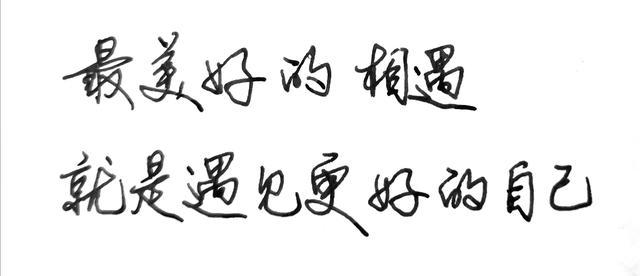 最美好的相遇
就是遇见更好的自己